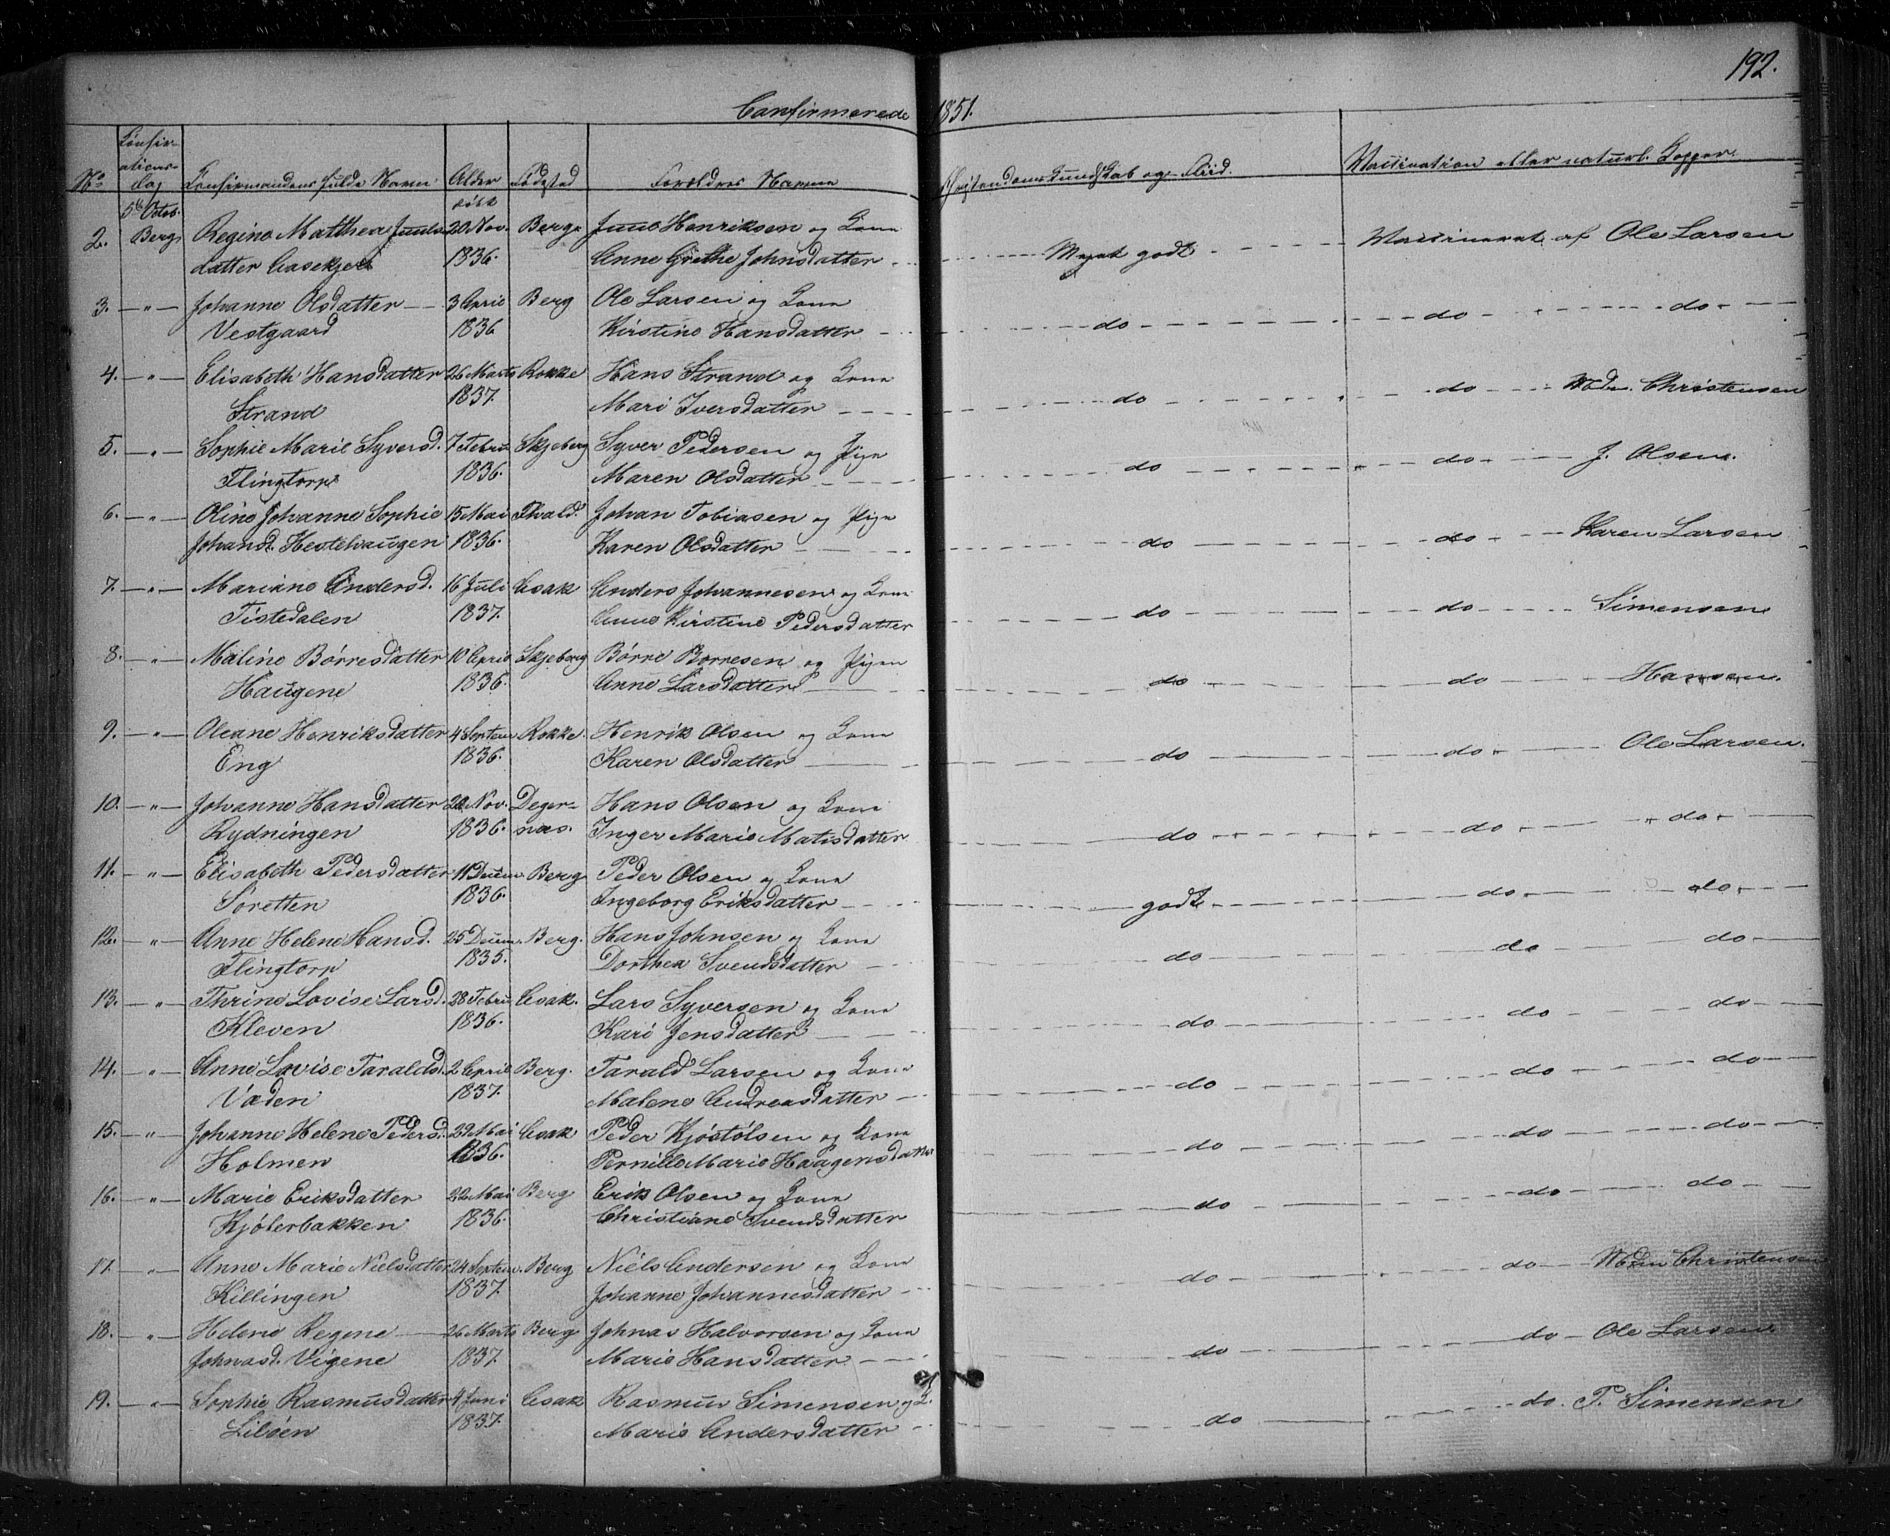 192.
Confirmerede 1851.
No Confirmations-Dag Confirmandens fulde Navn Alder Fødested Forældres Navne Christendoms Kundskab og Flid. Vaccination eller naturl. Kopper.
5te Octob. født
2. Berg Regine Matthea Juuls 20 Nov. Berg Juul Henriksen og Kone Meget godt Vaccineret af Ole Larsen
datter Aaskjer 1836. Anne Grethe Johnsdatter
3. —"— Johanne Olsdatter 3 April Berg Ole Larsen og Kone do do do
Vestgaard 1836 Kirstine Hansdatter
4. —"— Elisabeth Hansdatter 26 Marts Rokke Hans Strand og Kone do do Christensen
Strand 1837. Mari Iversdatter
5. —"— Sophie Marie Syversd. 7 Febru Skjeberg Syver Pedersen og Pige do do J. Olsen.
Flingtorp 1836. Maren Olsdatter
6. —"— Oline Johanne Sophie 15 Mai Johan Tobiasen og Pige do do Karen Larsen
Johansd. Hestehaugen 1836. Karen Olsdatter
7. —"— Mariane Andersd. 16 Juli Asak Anders Johannesen og Kone do do Simensen
Tistedalen 1837. Anne Kirstine Pedersdatter
8. —"— Maline Børresdatter 10 April Skjeberg Børre Børresen og Pigen do do Hansen.
Haugene 1836. Anne Larsdatter
9. —"— Oleane Henriksdatter 4 Septem Rokke Henrik Olsen og Kone do do Ole Larsen.
Eng 1836. Karen Olsdatter
10. —"— Johanne Hansdatter 20 Nov. Deger- Hans Olsen og Kone do do do
Rydningen 1836. næs. Inger Marie Matisdatter
11. —"— Elisabeth Pedersdatter 11 Decem. Berg Peder Olsen og Kone godt do do
Soretten 1836. Ingeborg Eriksdatter
12. —"— Anne Helene Hansd. 25 Decem. Berg. Hans Johnsen og Kone do do do
Flingtorp 1835. Dorthea Svendsdatter
13. —"— Thrine Lovise Larsd. 28 Febru Asak. Lars Syversen og Kone do do do
Kleven 1836. Kari Jensdatter
14. —"— Anne Lovise Taraldsd. 2 April Berg. Tarald Larsen og Kone do do do
Vaden 1837. Malene Andreasdatter
15. —"— Johanne Helene Pedersd. 29 Mai Asak Peder Kjøstolsen og Kone do do do
Holmen 1836. Pernille Marie Haagensdatter
16. —"— Marie Eriksdatter 22 Mai Berg Erik Olsen og Kone do do do
Kjølerbakken 1836. Christiane Svendsdatter
17. —"— Anne Marie Nielsdatter 24 Septem. Berg Niels Andersen og Kone do do Christensen
Killingen 1837. Johanne Johannesdatter
18. —"— Helene Regene 26 Marts Berg Johnas Halvorsen og Kone do do Ole Larsen
Johnasd. Vigene 1837. Marie Hansdatter
19. —"— Sophie Rasmusdatter 4 Juni Asak Rasmus Simensen og K. do do. P. Simensen
Liløen 1837. Marie Andersdatter